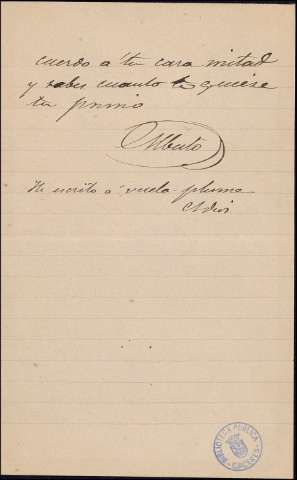 cuerdo á tu cara mitad
y sabes cuanto te quiere
tu primo
Alberto
He escrito á vuela-pluma
Adios
BIBLIOTECA PÚBLICA
CÁCERES